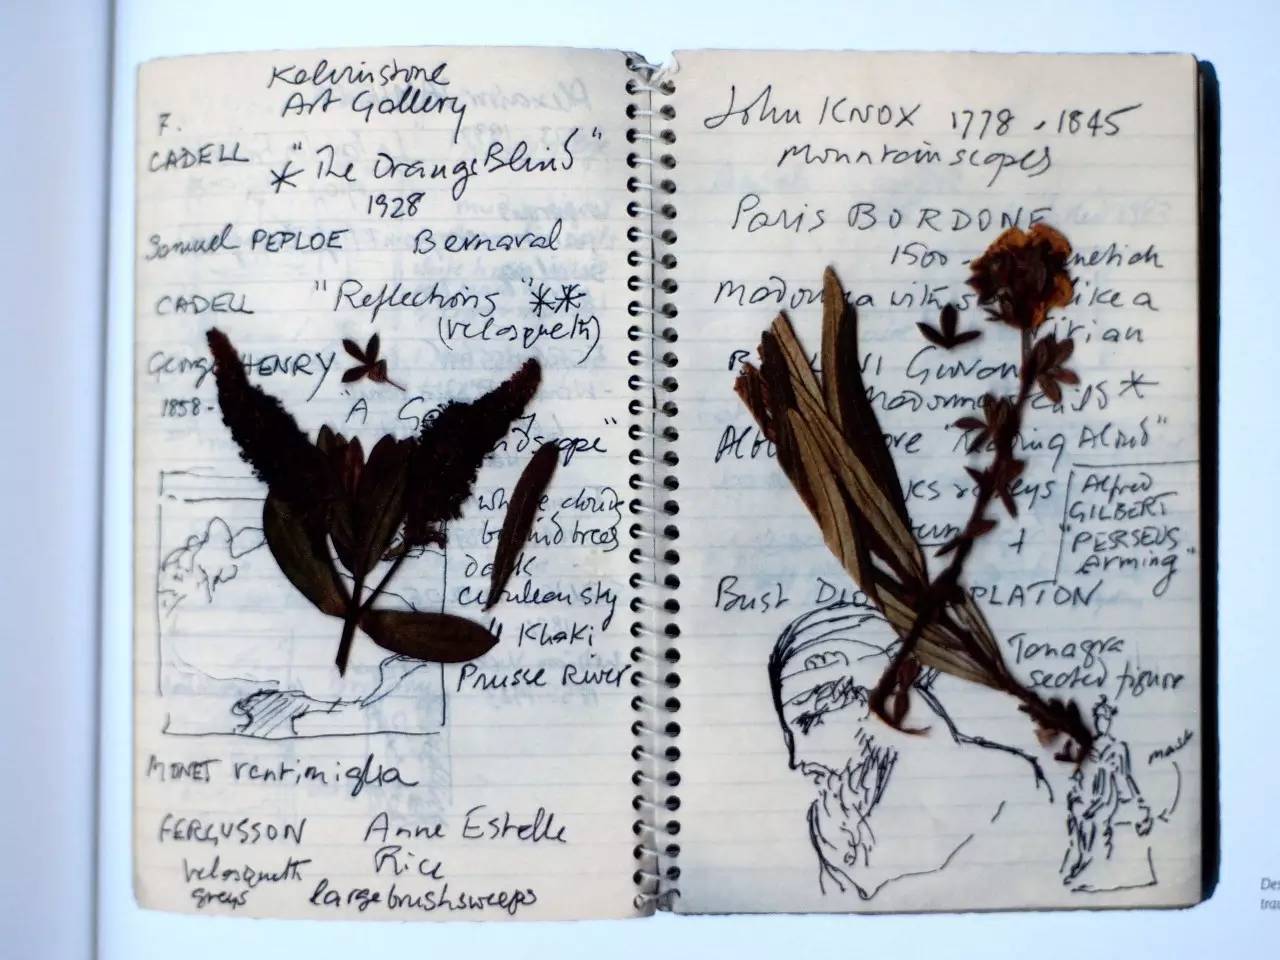 Kelvinstone
Art Gallery
7.
CADELL
* "The Orange Blind"
1928
Samuel PEPLOE Bernaval
CADELL "Reflections" **
(velasqueth)
George HENRY
1858-
"A
white clouds
behind trees
dark
cerulean sky
" Khaki
Prusse River
MONET Ventimiglia
FERGUSSON Anne Estelle
Rice
velasqueth
greys
large brushsweeps
John KNOX 1778 - 1845
Mountainscapes
Paris BORDONE
1500 -
Madonna with like a
Titian
Madonna child *
Alfred
GILBERT
"PERSEUS
Arming"
Bust PLATON
Tanagra
seated figure
mask
Des
trau